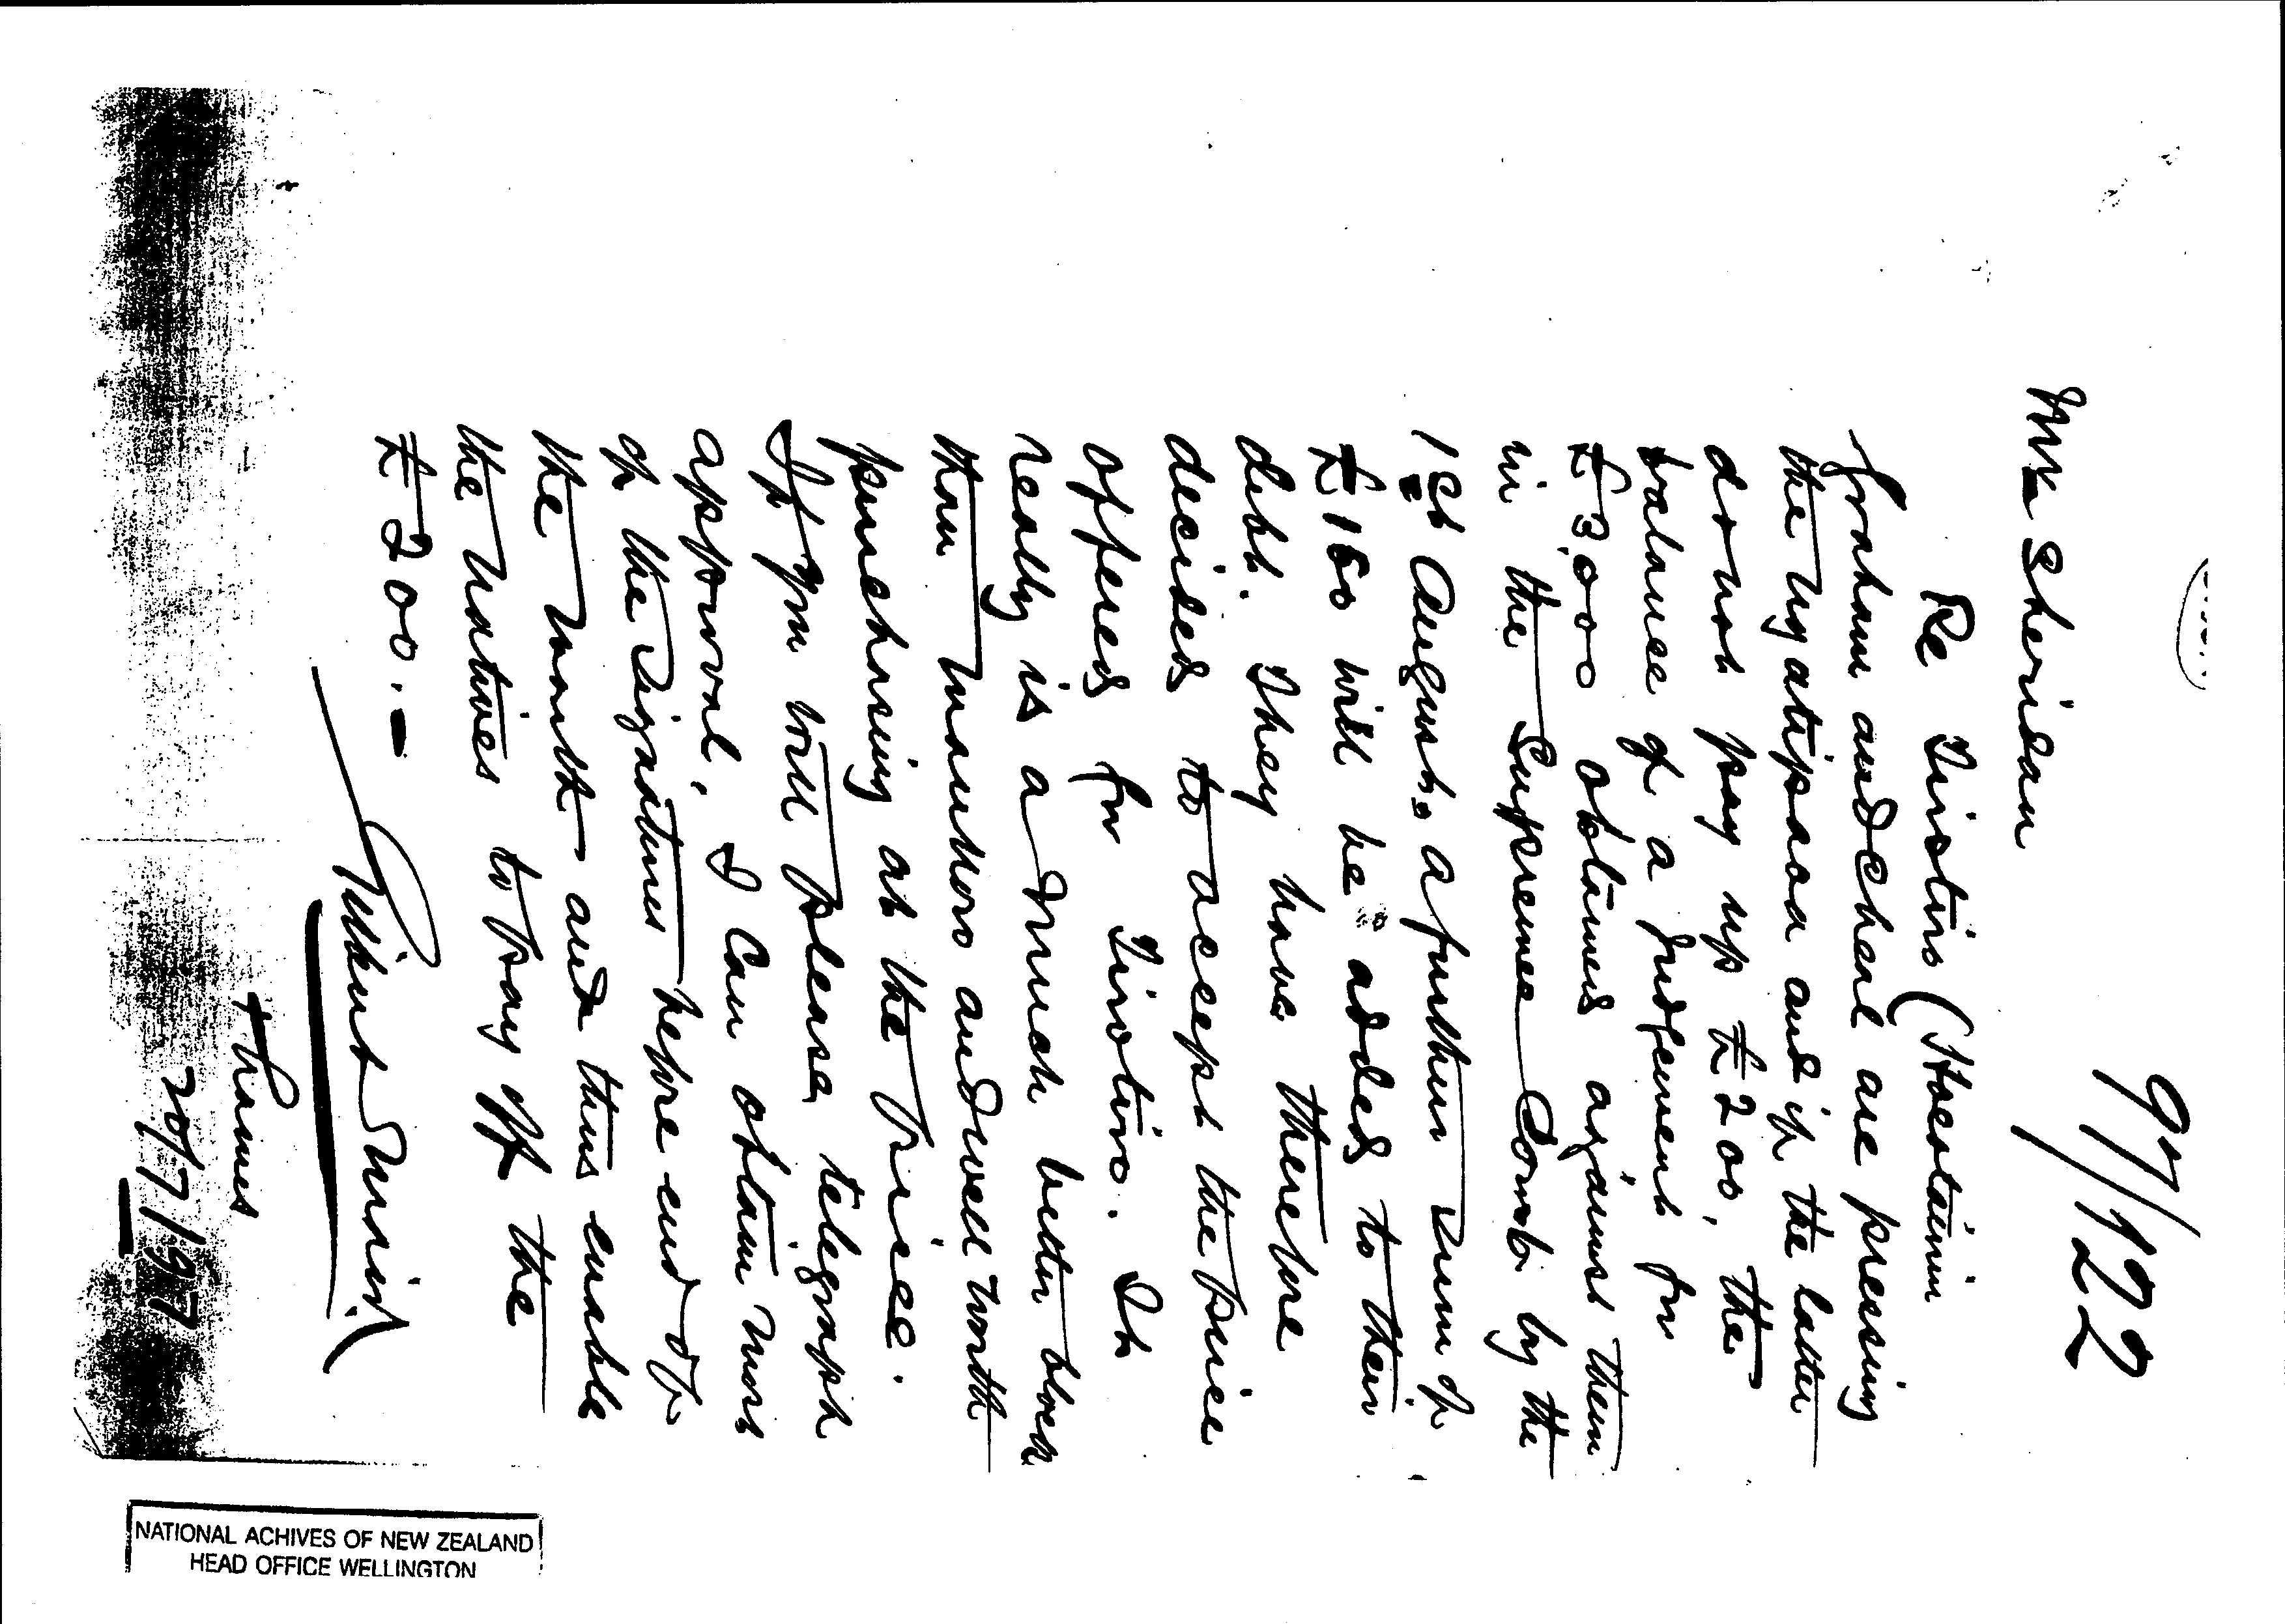 97/122
Mr Sheridan
Re Tirotiro (Hoestainui
Graham and Cheal are pressing
the Ngatipaoa and if the latter
do not pay up £200, the
balance of a judgement for
£3,000 obtained against them
in the Supreme Court by the
1st August, a further sum of
£160 will be added to their
debt. They have therefore
decided to accept the price
offered for Tirotiro. It
really is a much better block
than and well worth
purchasing at the price.
If you will please telegraph
approval, I can obtain most
of the signatures before end of
the month and thus enable
the natives to pay off the
£200.-
Gilbert Mair
Thames
20/7/97
NATIONAL ACHIVES OF NEW ZEALAND
HEAD OFFICE WELLINGTON